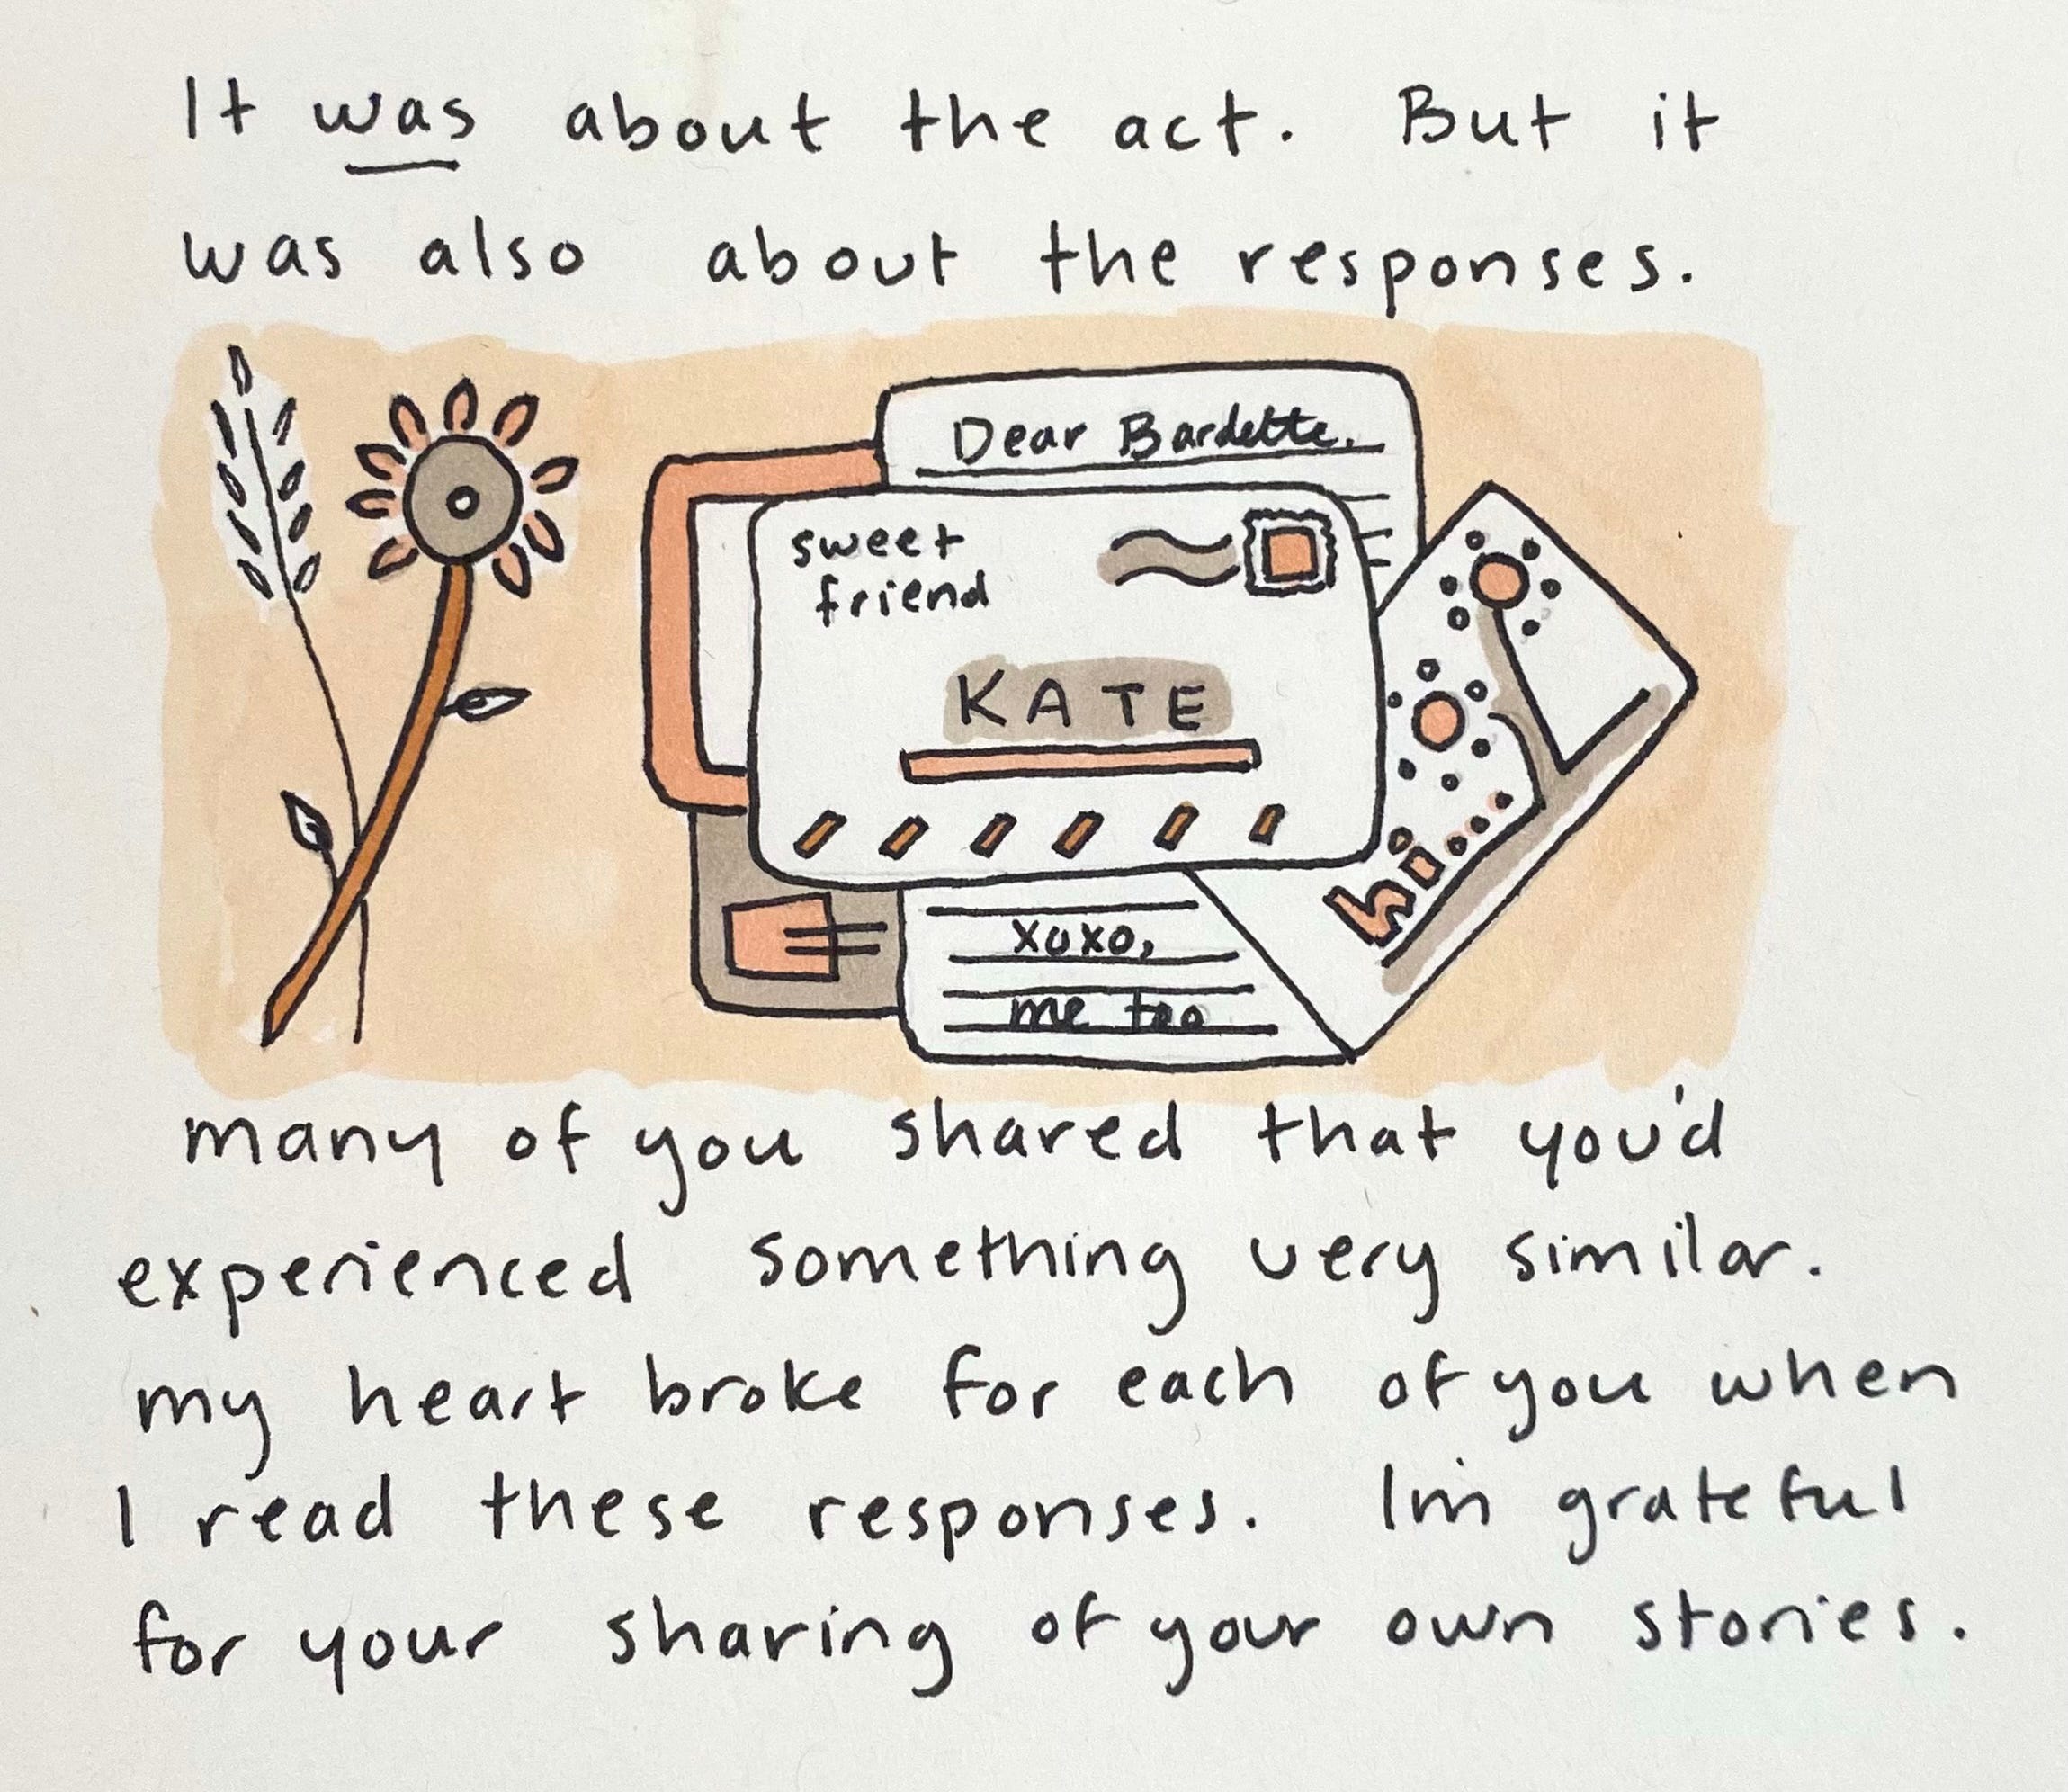 It was about the act. But it
was also about the responses.
Dear Bardette,
sweet
friend
KATE
hi
xoxo,
me too
many of you shared that you'd
experienced something very similar.
my heart broke for each of you when
I read these responses. I'm grateful
for your sharing of your own stories.